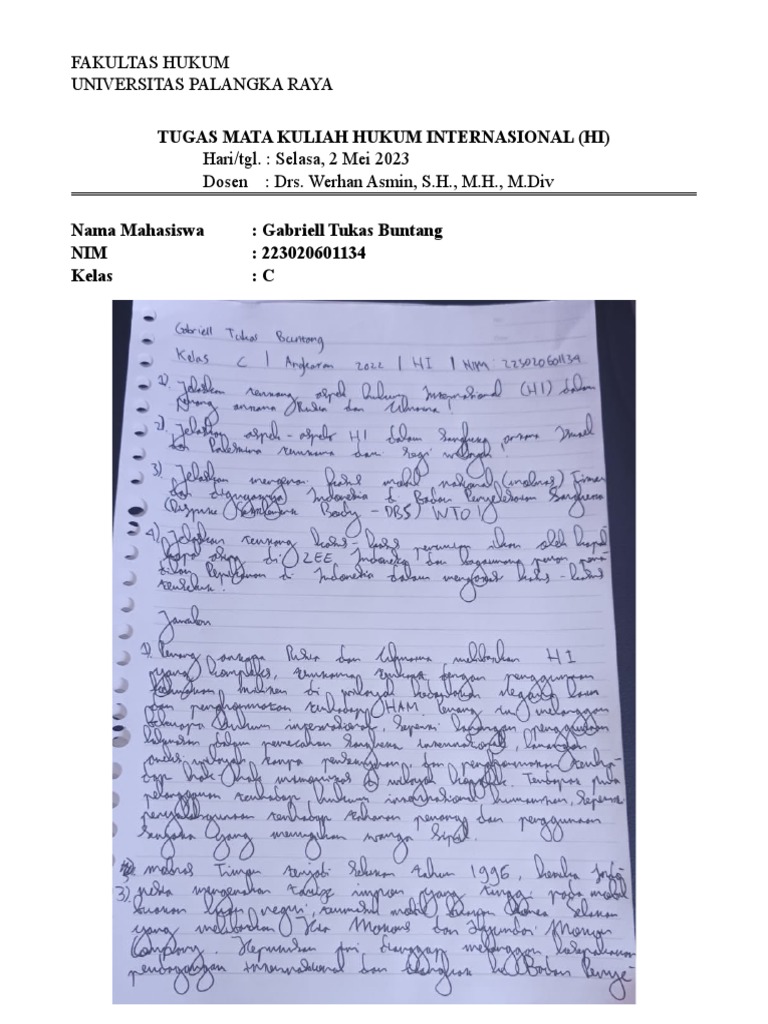 FAKULTAS HUKUM
UNIVERSITAS PALANGKA RAYA
TUGAS MATA KULIAH HUKUM INTERNASIONAL (HI)
Hari/tgl. : Selasa, 2 Mei 2023
Dosen : Drs. Werhan Asmin, S.H., M.H., M.Div
Nama Mahasiswa : Gabriell Tukas Buntang
NIM : 223020601134
Kelas : C
Gabriell Tukas Buntang
Kelas C | Angkatan 2022 | HI | NIM: 223020601134
1). Jelaskan tentang aspek hukum Internasional (HI) dalam
perang antara Rusia dan Ukraina!
2). Jelaskan aspek-aspek HI dalam sengketa antara Israel
dan Palestina terutama dari segi wilayah!
3) Jelaskan mengenai kasus mobil nasional (mobnas) Timor
dan digugatnya Indonesia di Badan Penyelesaian Sengketa
(Dispute Settlement Body - DBS) WTO!
4) Jelaskan tentang kasus-kasus pencurian ikan oleh kapal
asing di ZEE Indonesia dan bagaimana peran
Pengadilan Perikanan di Indonesia dalam mengatasi kasus-kasus
tersebut.
Jawaban
1). Perang antara Rusia dan Ukraina melibatkan HI
yang kompleks, terutama terkait dengan penggunaan
kekuatan militer di wilayah kedaulatan negara lain
dan penghormatan terhadap HAM. Perang ini melanggar
beberapa hukum internasional, seperti larangan penggunaan
kekuatan dalam pemecahan sengketa internasional, larangan
aneksi wilayah tanpa persetujuan, dan penghormatan terha-
dap hak-hak di wilayah konflik. Terdapat pula
pelanggaran terhadap hukum internasional humaniter, seperti
terhadap tahanan perang dan penggunaan
senjata yang merugikan warga sipil.
3) mobnas Timor terjadi sekitar tahun 1996, ketika Indo-
nesia mengenakan tarif impor yang tinggi pada mobil
buatan luar negeri, termasuk mobil buatan Korea Selatan
yang melibatkan Kia Motors dan Hyundai Motor
Company. Keputusan ini dianggap melanggar kesepakatan
perdagangan internasional dan diajukan ke Badan Penye-